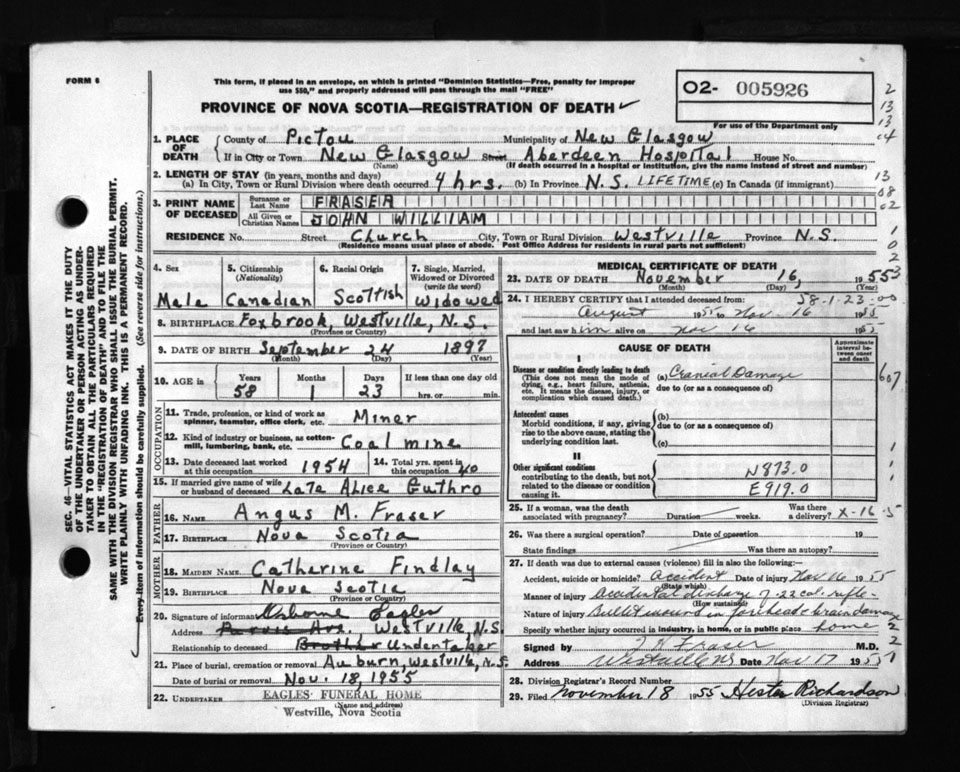 FORM 6
This form, if placed in an envelope, on which is printed "Dominion Statistics—Free, penalty for improper
use $50," and properly addressed will pass through the mail "FREE"
PROVINCE OF NOVA SCOTIA—REGISTRATION OF DEATH ✓
O2- 005926
For use of the Department only
2
13
13
04
1. PLACE OF DEATH
County of Pictou Municipality of New Glasgow
If in City or Town New Glasgow Street Aberdeen Hospital House No.
(Name) (If death occurred in a hospital or institution, give the name instead of street and number)
2. LENGTH OF STAY (in years, months and days)
(a) In City, Town or Rural Division where death occurred 4 hrs. (b) In Province N.S. LIFETIME (c) In Canada (if immigrant)
13
08
02
3. PRINT NAME OF DECEASED
Surname or Last Name FRASER
All Given or Christian Names JOHN WILLIAM
RESIDENCE No. Street Church City, Town or Rural Division Westville Province N.S.
(Residence means usual place of abode. Post Office Address for residents in rural parts not sufficient)
1
0
2
3
4. Sex Male
5. Citizenship (Nationality) Canadian
6. Racial Origin Scottish
7. Single, Married, Widowed or Divorced (write the word) Widowed
8. BIRTHPLACE Foxbrook Westville, N.S.
(Province or Country)
9. DATE OF BIRTH September 24 1897
(Month) (Day) (Year)
10. AGE in Years Months Days If less than one day old
58 1 23 hrs. or min.
OCCUPATION
11. Trade, profession, or kind of work as spinner, teamster, office clerk, etc. Miner
12. Kind of industry or business, as cotton-mill, lumbering, bank, etc. Coal mine
13. Date deceased last worked at this occupation 1954
14. Total yrs. spent in this occupation 40
15. If married give name of wife or husband of deceased Late Alice Guthro
FATHER
16. NAME Angus M. Fraser
17. BIRTHPLACE Nova Scotia
(Province or Country)
MOTHER
18. MAIDEN NAME Catherine Findlay
19. BIRTHPLACE Nova Scotia
(Province or Country)
20. Signature of informant Osborne Eagles
Address Westville N.S.
Relationship to deceased Brother Undertaker
21. Place of burial, cremation or removal Auburn, Westville, N.S.
Date of burial or removal Nov. 18, 1955
22. UNDERTAKER EAGLES' FUNERAL HOME
(Name and address)
Westville, Nova Scotia
MEDICAL CERTIFICATE OF DEATH
23. DATE OF DEATH November 16, 1955
(Month) (Day) (Year)
58-1-23-00
24. I HEREBY CERTIFY that I attended deceased from:
August 1955 to Nov. 16 1955
and last saw him alive on Nov 16 1955
CAUSE OF DEATH
Approximate interval between onset and death
I
Disease or condition directly leading to death
(This does not mean the mode of dying, e.g., heart failure, asthenia, etc. It means the disease, injury, or complication which caused death.)
(a) Cranial Damage
due to (or as a consequence of)
607
Antecedent causes
Morbid conditions, if any, giving rise to the above cause, stating the underlying condition last.
(b)
due to (or as a consequence of)
(c)
II
Other significant conditions
contributing to the death, but not related to the disease or condition causing it.
N873.0
E919.0
1
1
1
25. If a woman, was the death associated with pregnancy? Duration weeks. Was there a delivery? X-16-5
26. Was there a surgical operation? Date of operation 19
State findings Was there an autopsy?
27. If death was due to external causes (violence) fill in also the following:
Accident, suicide or homicide? Accident Date of injury Nov 16 1955
(State which)
Manner of injury Accidental discharge of .22 cal. rifle-
(How sustained)
Nature of injury Bullet wound in forehead & brain damage
Specify whether injury occurred in industry, in home, or in public place home
2
2
Signed by Fraser M.D.
Address Westville NS Date Nov 17 1955
28. Division Registrar's Record Number
29. Filed November 18 1955 Hester Richardson
(Division Registrar)
SEC. 46—VITAL STATISTICS ACT MAKES IT THE DUTY
OF THE UNDERTAKER OR PERSON ACTING AS UNDER-
TAKER TO OBTAIN ALL THE PARTICULARS REQUIRED
IN THE "REGISTRATION OF DEATH" AND TO FILE THE
SAME WITH THE DIVISION REGISTRAR WHO SHALL ISSUE THE BURIAL PERMIT.
WRITE PLAINLY WITH UNFADING INK. THIS IS A PERMANENT RECORD.
Every item of information should be carefully supplied. (See reverse side for instructions.)